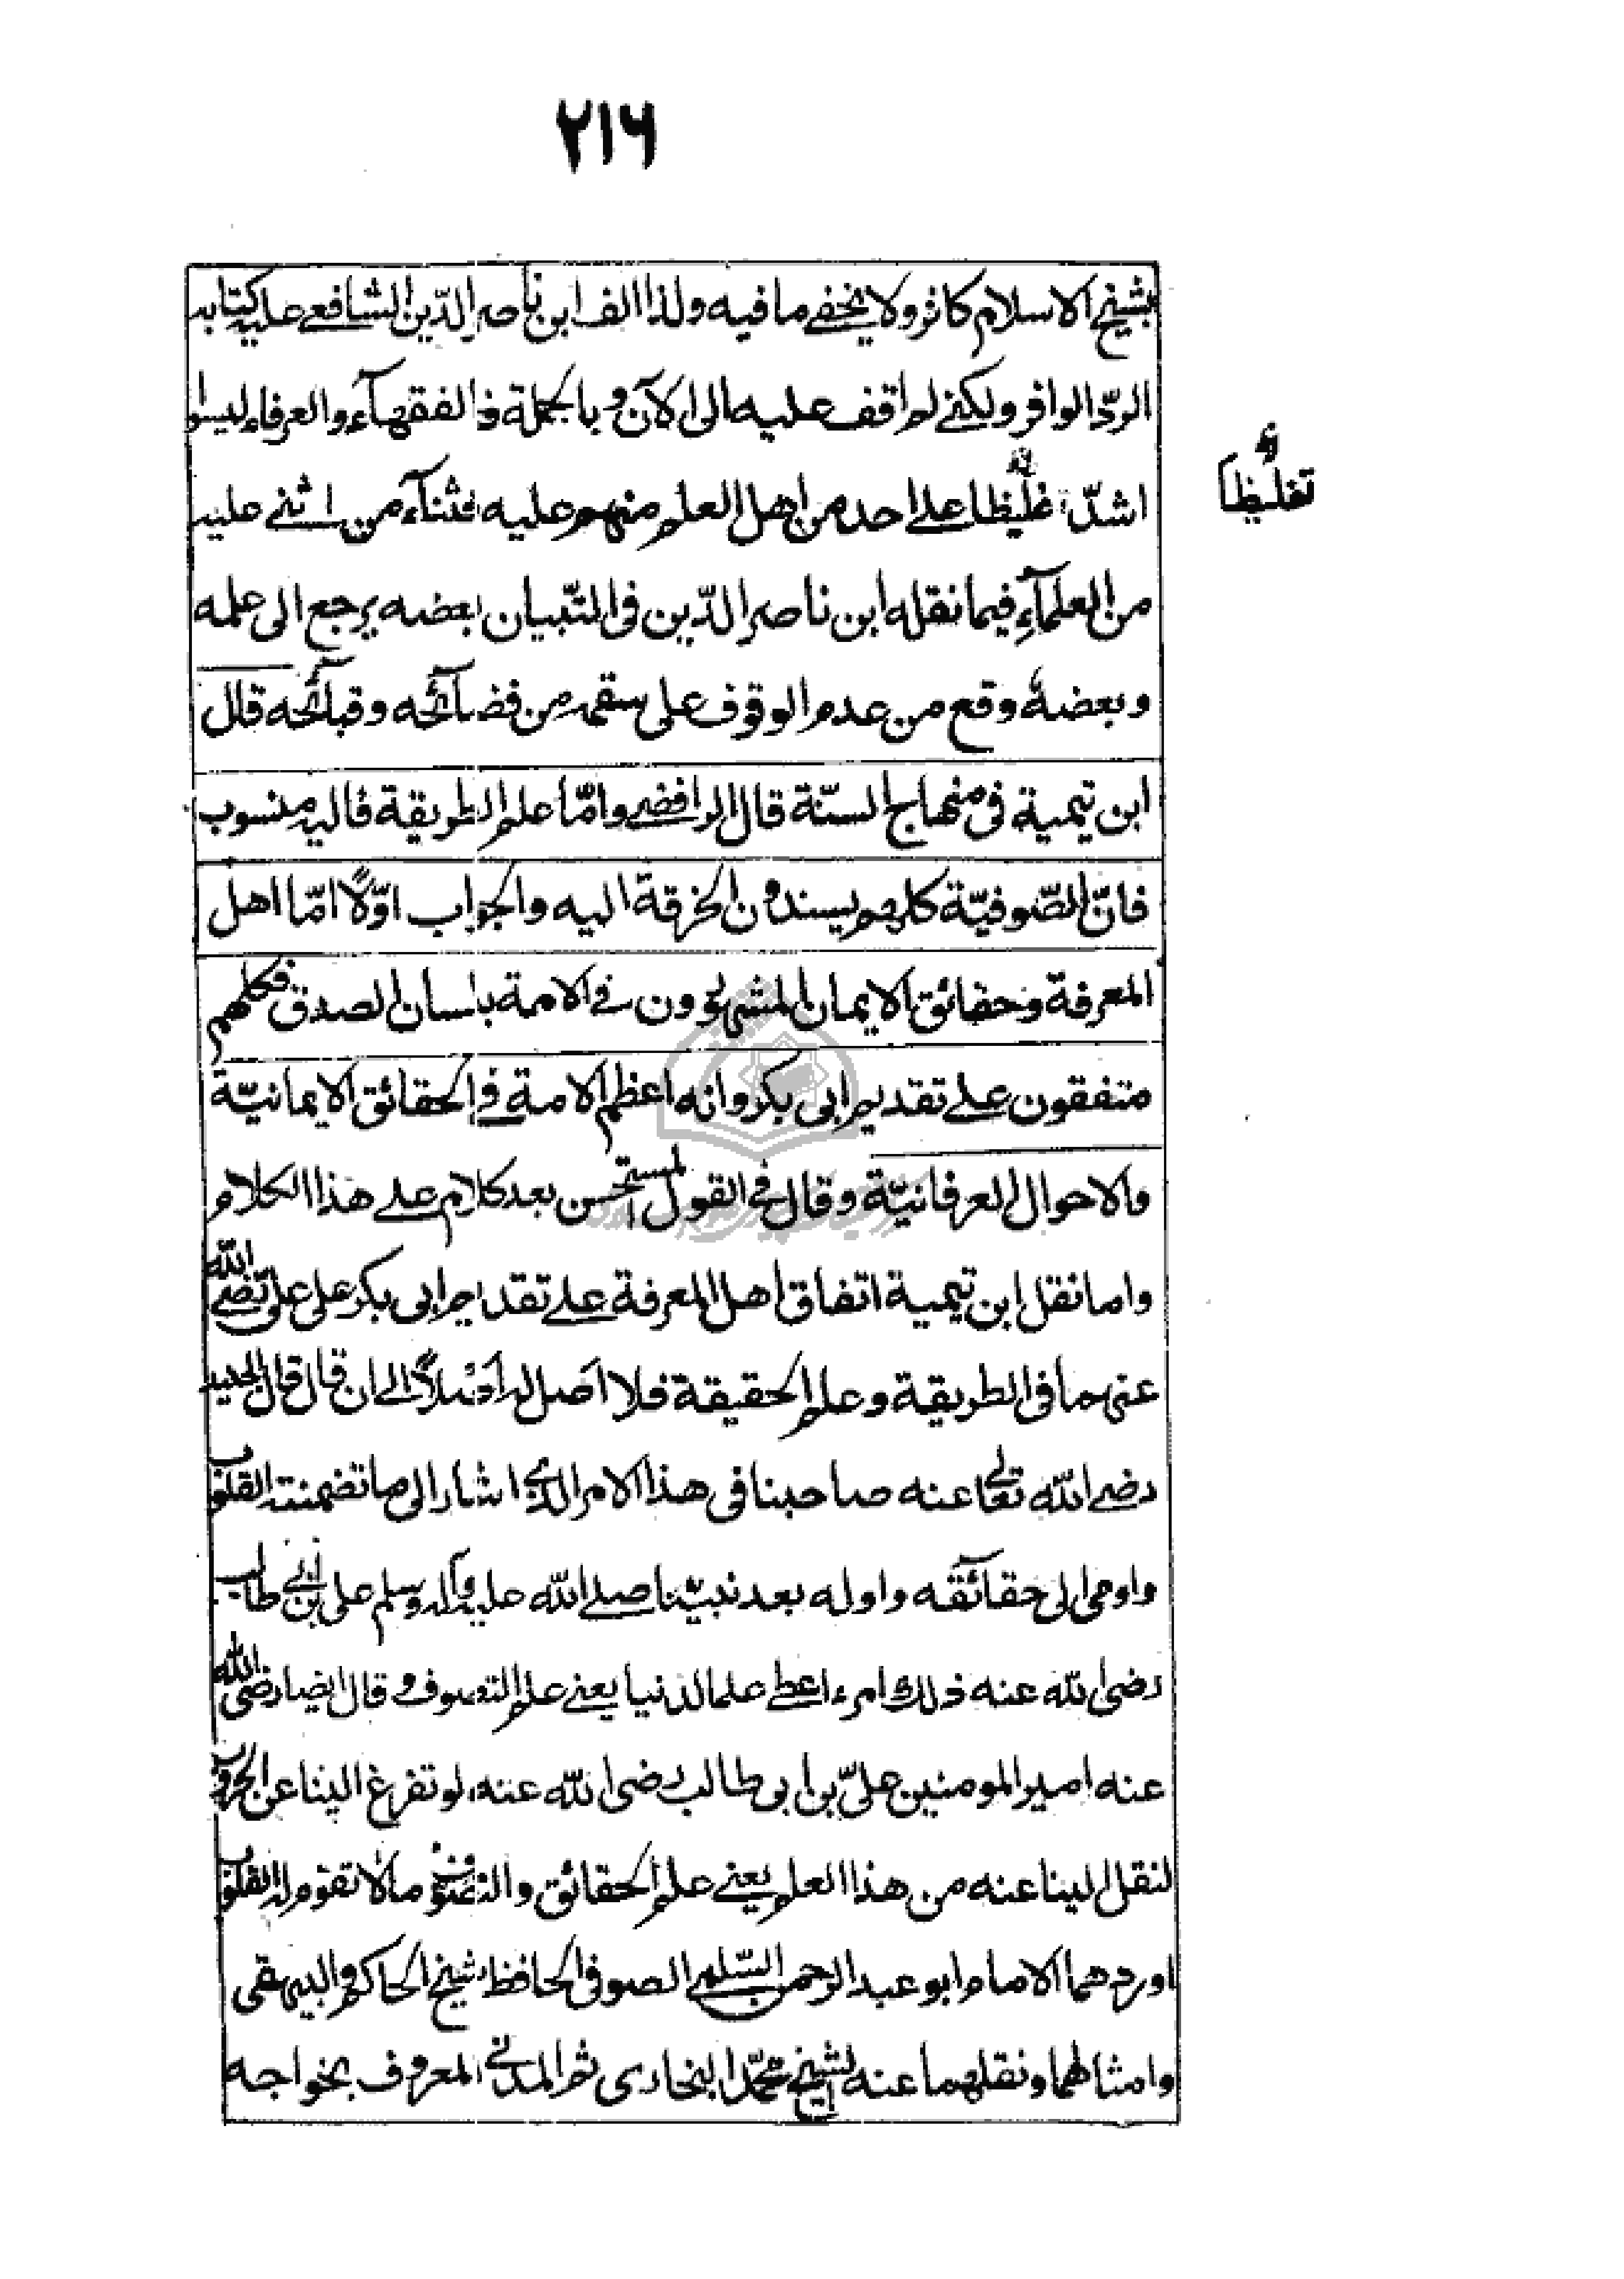 ٢١٦
بشيخ الاسلام كافر ولا يخفى ما فيه ولذا الف ابن ناصر الدّين الشافعي عليه كتابه
الردّ الوافر ولكني لم اقف عليه الى الآن و بالجملة فالفقهآء والعرفاء ليسوا
اشدّ تغليظا على احد من اهل العلم منهم عليه فثنآء من اثنى عليه
تغليظا
من العلمآءِ فيما نقله ابن ناصر الدّين فى التّبيان بعضه يرجع الى علمه
وبعضهُ وقع من عدم الوقوف على سقمه من فضآئحه وقبآئحه قال
ابن تيمية فى منهاج السنّة قال الرافضي وامّا علم الطريقة فاليه منسوب
فانّ الصّوفيّة كلهم يسندون الخرقة اليه والجواب اوّلاً امّا اهل
المعرفة وحقائق الايمان المشهورون في الامة بلسان الصدق فكلهم
متفقون على تقديم ابى بكر وانه اعظم الامة في الحقائق الايمانيّة
والاحوال العرفانيّة وقال في القول المستحسن بعد كلام على هذا الكلام
واما نقل ابن تيمية اتفاق اهل المعرفة على تقديم ابى بكر على على رضي الله
عنهما فى الطريقة وعلم الحقيقة فلا اصل له اصلاً الى ان قال قال الجنيد
رضي الله تعالى عنه صاحبنا فى هذا الامر الذي اشار الى ما تضمنته القلوب
واومى الى حقآئقه واوله بعد نبيّنا صلى الله عليه وآله وسلم على بن ابي طالب
رضى الله عنه ذلك امرء اعطى علما لدنيا يعني علم التصوف و قال ايضا رضى الله
عنه امير المومنين علىّ بن ابى طالب رضى الله عنه لو تفرغ الينا عن الحروب
لنقل الينا عنه من هذا العلم يعني علم الحقائق والتصوف ما لا تقوم له القلوب
اوردهما الامام ابو عبد الرحمن السّلمي الصوفى الحافظ شيخ الحاكم والبيهقى
وامثالهما ونقلهما عنه الشيخ محمّد البخارى ثم المدني المعروف بخواجه